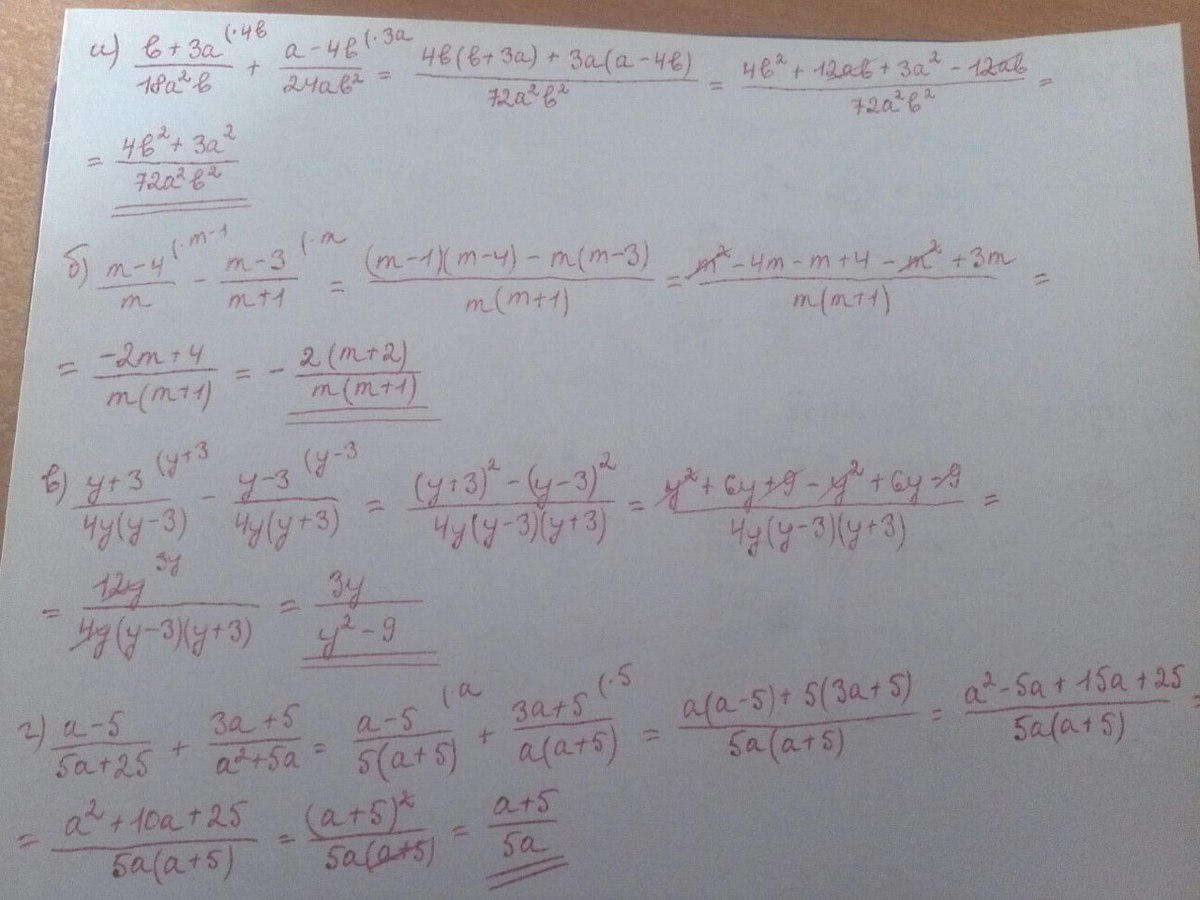 а) (в+3а)/(18а²в) (·4в + (а-4в)/(24ав²) (·3а = (4в(в+3а)+3а(а-4в))/(72а²в²) = (4в²+12ав+3а²-12ав)/(72а²в²) =
= (4в²+3а²)/(72а²в²)
б) (m-4)/m (·m-1 - (m-3)/(m+1) (·m = ((m-1)(m-4)-m(m-3))/(m(m+1)) = (m²-4m-m+4-m²+3m)/(m(m+1)) =
= (-2m+4)/(m(m+1)) = - (2(m+2))/(m(m+1))
в) (y+3)/(4y(y-3)) (y+3 - (y-3)/(4y(y+3)) (y-3 = ((y+3)²-(y-3)²)/(4y(y-3)(y+3)) = (y²+6y+9-y²+6y-9)/(4y(y-3)(y+3)) =
= (12y 3y)/(4y(y-3)(y+3)) = (3y)/(y²-9)
г) (а-5)/(5а+25) + (3а+5)/(а²+5а) = (а-5)/(5(а+5)) (·а + (3а+5)/(а(а+5)) (·5 = (а(а-5)+5(3а+5))/(5а(а+5)) = (а²-5а+15а+25)/(5а(а+5)) =
= (а²+10а+25)/(5а(а+5)) = (а+5)²/(5а(а+5)) = (а+5)/(5а)